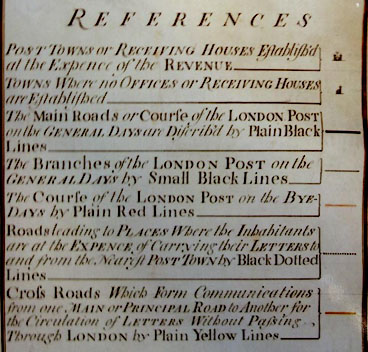 REFERENCES
POST TOWNS or RECEIVING HOUSES Establish'd
at the Expence of the REVENUE
TOWNS Where no OFFICES or RECEIVING HOUSES
are Established
The Main Roads or Course of the LONDON POST
on the GENERAL DAYS are Discrib'd by Plain Black
Lines
The Branches of the LONDON POST on the
GENERAL DAYS by Small Black Lines
The Course of the LONDON POST on the BYE-
DAYS by Plain Red Lines
Roads leading to PLACES Where the Inhabitants
are at the EXPENCE of Carrying their LETTERS to
and from the Near'st POST TOWN by Black Dotted
Lines
Cross Roads Which Form Communications
from one MAIN or PRINCIPAL ROAD to Another for
the Circulation of LETTERS Without Passing
Through LONDON by Plain Yellow Lines